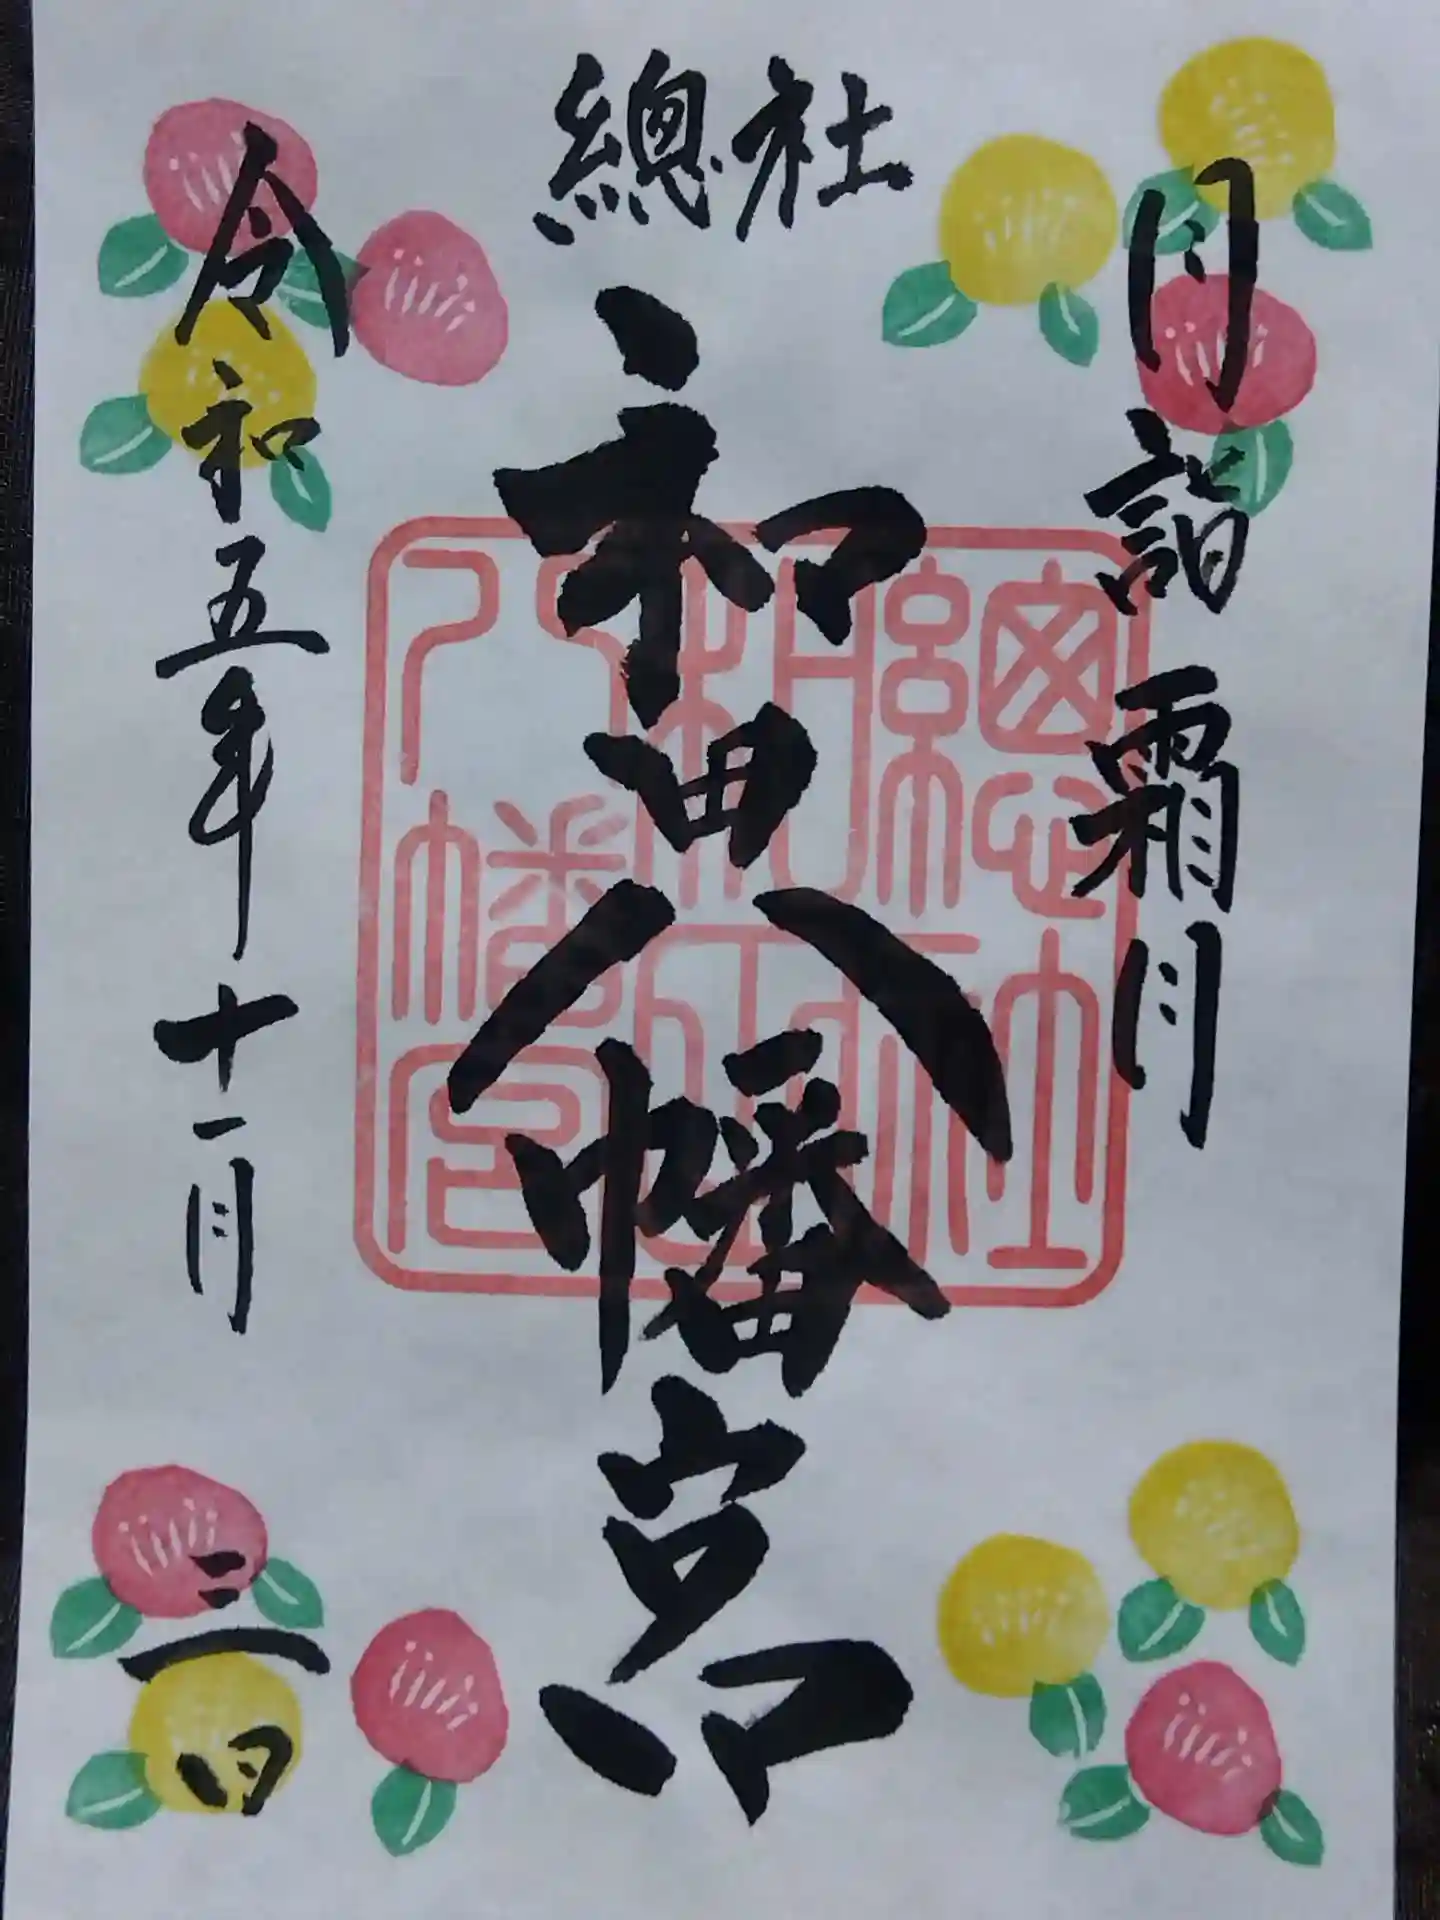 總社
月詣 霜月
和田八幡宮
令和五年十一月三日
總社
和田
八幡宮